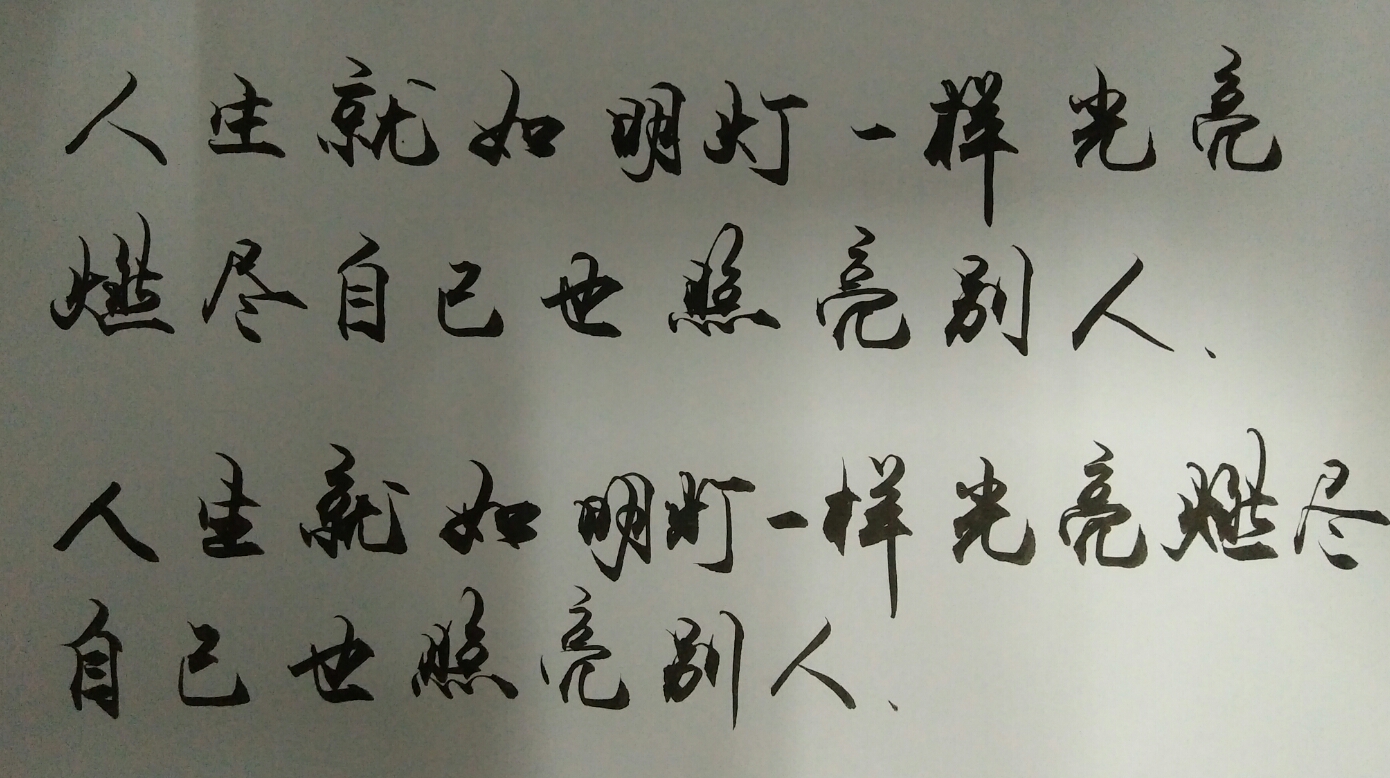 人生就如明灯一样光亮
燃尽自己也照亮别人、
人生就如明灯一样光亮燃尽
自己也照亮别人、